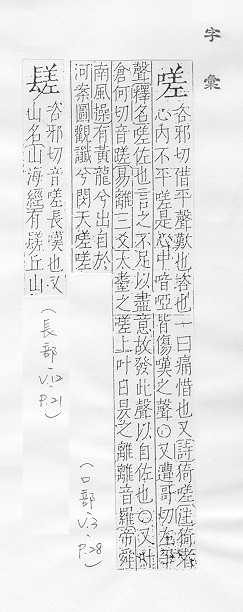 字彙
嗟
咨邪切借平聲歎也咨也一曰痛惜也又詩猗嗟註猗者
心內不平嗟是心中喑啞皆傷嘆之聲○又遭哥切左平
聲釋名嗟佐也言之不足以盡意故發此聲以自佐也○又叶
倉何切音蹉易離三爻大耋之嗟上叶日昃之離離音羅帝舜
南風操有黃龍兮出自於
河案圖觀讖兮閔天嗟嗟
(口部 V.3 P.28)
镸差
咨邪切音嗟長嘆也又
山名山海經有 丘山
(長部 V.12 P.21)